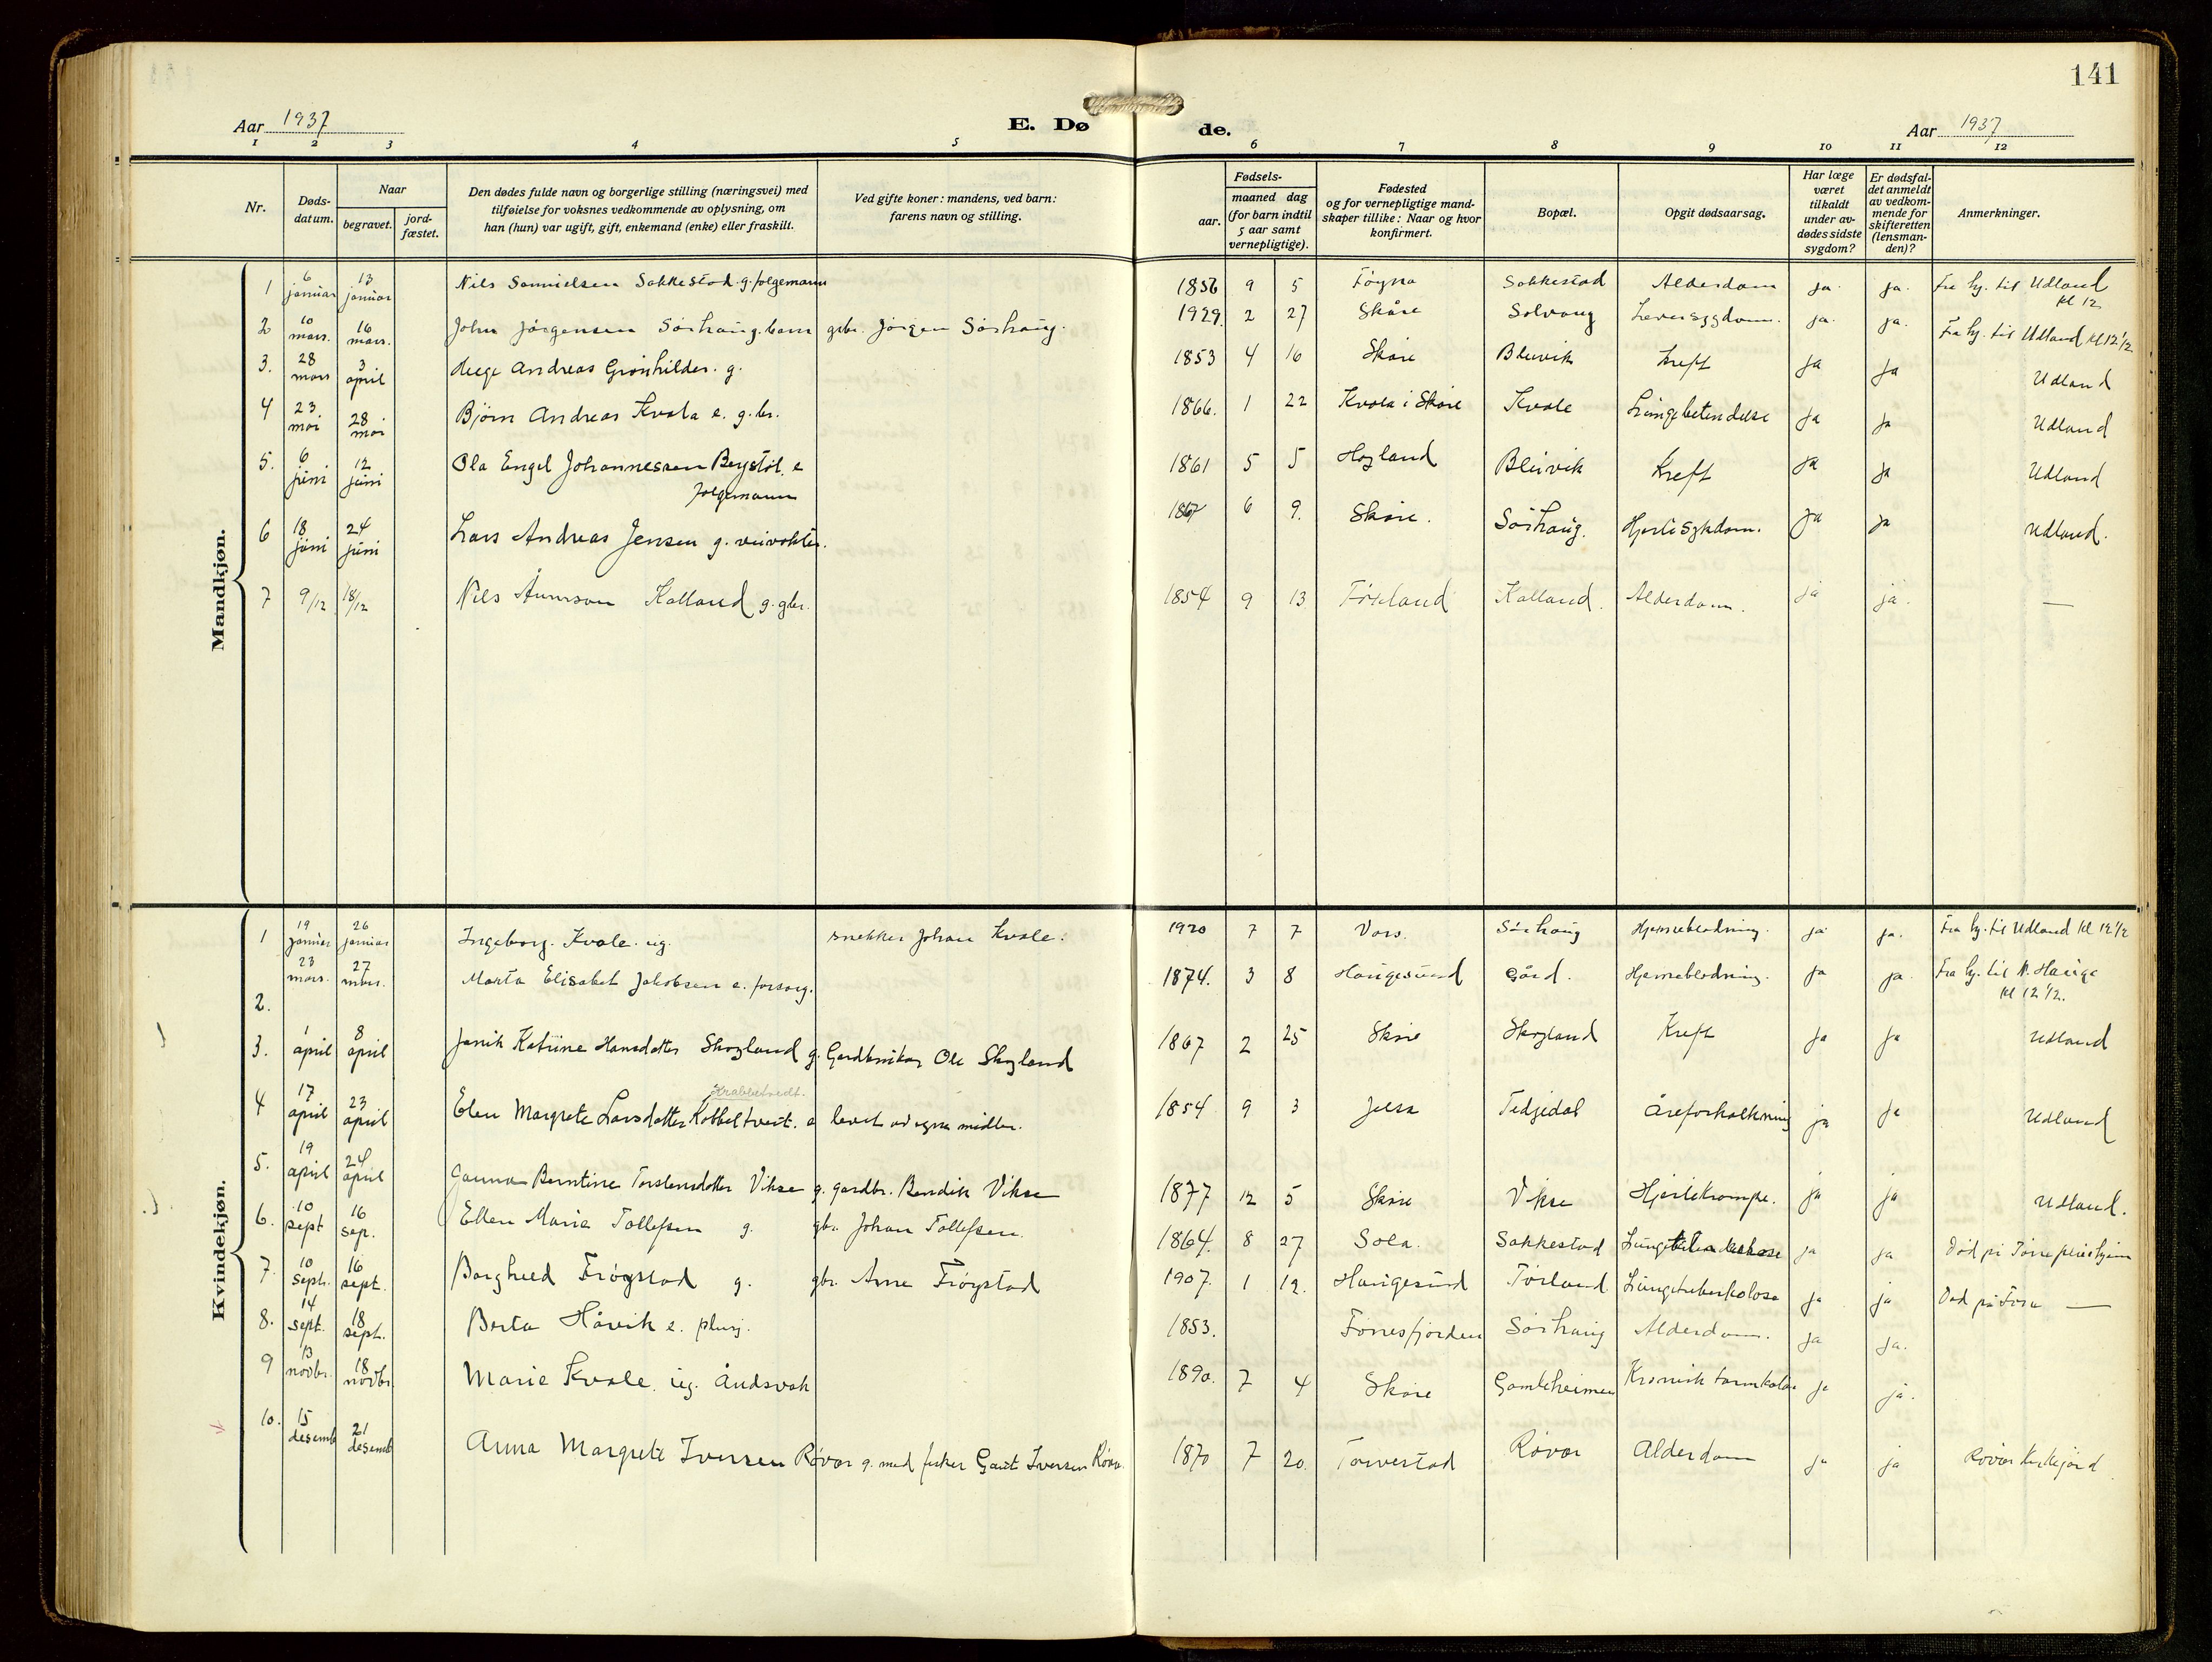 141
Aar 1937
E. Dø
de.
Aar 1937
1 2 3 4 5 6 7 8 9 10 11 12
Nr.
Døds-
datum.
Naar
begravet.
jord-
fæstet.
Den dødes fulde navn og borgerlige stilling (næringsvei) med
tilføielse for voksnes vedkommende av oplysning, om
han (hun) var ugift, gift, enkemand (enke) eller fraskilt.
Ved gifte koner: mandens, ved barn:
farens navn og stilling.
Fødsels-
aar.
maaned dag
(for barn indtil
5 aar samt
vernepligtige).
Fødested
og for vernepligtige mand-
skaper tillike: Naar og hvor
konfirmert.
Bopæl.
Opgit dødsaarsag.
Har læge
været
tilkaldt
under av-
dødes sidste
sygdom?
Er dødsfal-
det anmeldt
av vedkom-
mende for
skifteretten
(lensman-
den)?
Anmerkninger.
Mandkjøn.
1 6 januar 13 januar Nils Samuelsen Sakkestad g. folgemann 1856 9 5 Sakkestad Alderdom ja ja Fra hj. til Udland
kl 12
2 10 mars. 16 mars. John Jørgensen Sørhaug. barn gbr. Jørgen Sørhaug. 1929. 2 27 Skåre Solvang Leversygdom. ja ja. Fra hj. til Udland kl 12 1/2
3. 28 mars 3 april Andreas Grønhilder. g. 1853 4 16 Skåre Bleivik Kreft ja ja Udland
4 23. mai 28 mai Bjørn Andreas Kvala e. g. br. 1866. 1 22 Kvala i Skåre Kvale Lungebetendelse ja ja Udland
5. 6 juni 12 juni Ola Engel Johannessen Bøystøl. e
folgemann 1861 5 5 Hogland Bleivik Kreft ja ja Udland
6 18 juni 24 juni Lars Andreas Jensen g. veivokter. 1867 6 9. Skåre. Sørhaug. Hjertesykdom. ja ja Udland.
7 9/12 18/12 Nils Kalland g. gbr. 1854 9 13 Førland Kalland. Alderdom. ja ja. —
Kvindekjøn.
1 19 januar 26 januar Ingeborg. Kvale. ug. snekker Johan Kvale. 1920 7 7 Vors. Sørhaug Hjerneblødning. ja ja. Fra hj. til Udland kl 12 1/2
2. 23 mars. 27 mars. Marta Elisabet Jakobsen e. forsorg. 1874. 3 8 Haugesund Gård. Hjerneblødning. ja ja Fra hj. til N. Hauge
kl 12 1/2.
3. 1 april 8 april Janik Katrine Hansdatter Skogland g. Gardbruker Ole Skogland 1867 2 25 Skåre Skogland Kreft ja ja Udland
Krabbetvedt.
4 17 april 23 april Elen Margrete Larsdatter Kobbeltveit. e levet av egne midler. 1854 9 3 Jelsa Tedjedal Åreforkalkning ja ja Udland
5. 19 april 24 april Berntine Torstensdatter Vikse g. gardbr. Bendik Vikse 1877 12 5 Skåre Vikse Hjertekrampe. ja ja Udland.
6. 10 sept 16 sep. Ellen Marie Tollefsen g. gbr. Johan Tollefsen. 1864. 8 27 Sola. Sakkestad ja ja Død på
7. 10 sept. 16 sept. Borghild Frøgstad g. gbr. Arne Frøgstad 1907. 1 12. Haugesund Førland Lungetuberkolose ja ja Død på —
8. 14 sept. 18 sept. Berta Håvik e. 1853. Førresfjorden Sørhaug Alderdom. ja ja.
9 13 novbr. 18 novbr. Marie Kvale. ug. Åndsvak 1890. 7 4 Skåre Gamleheimen Kronisk ja ja.
10. 15 desemb 21 desemb Anna Margrete Iversen Røvær g. med fisker Gaut Iversen Røvær 1870 7 20. Torvestad Røvær Alderdom ja ja Røvær kirkejord